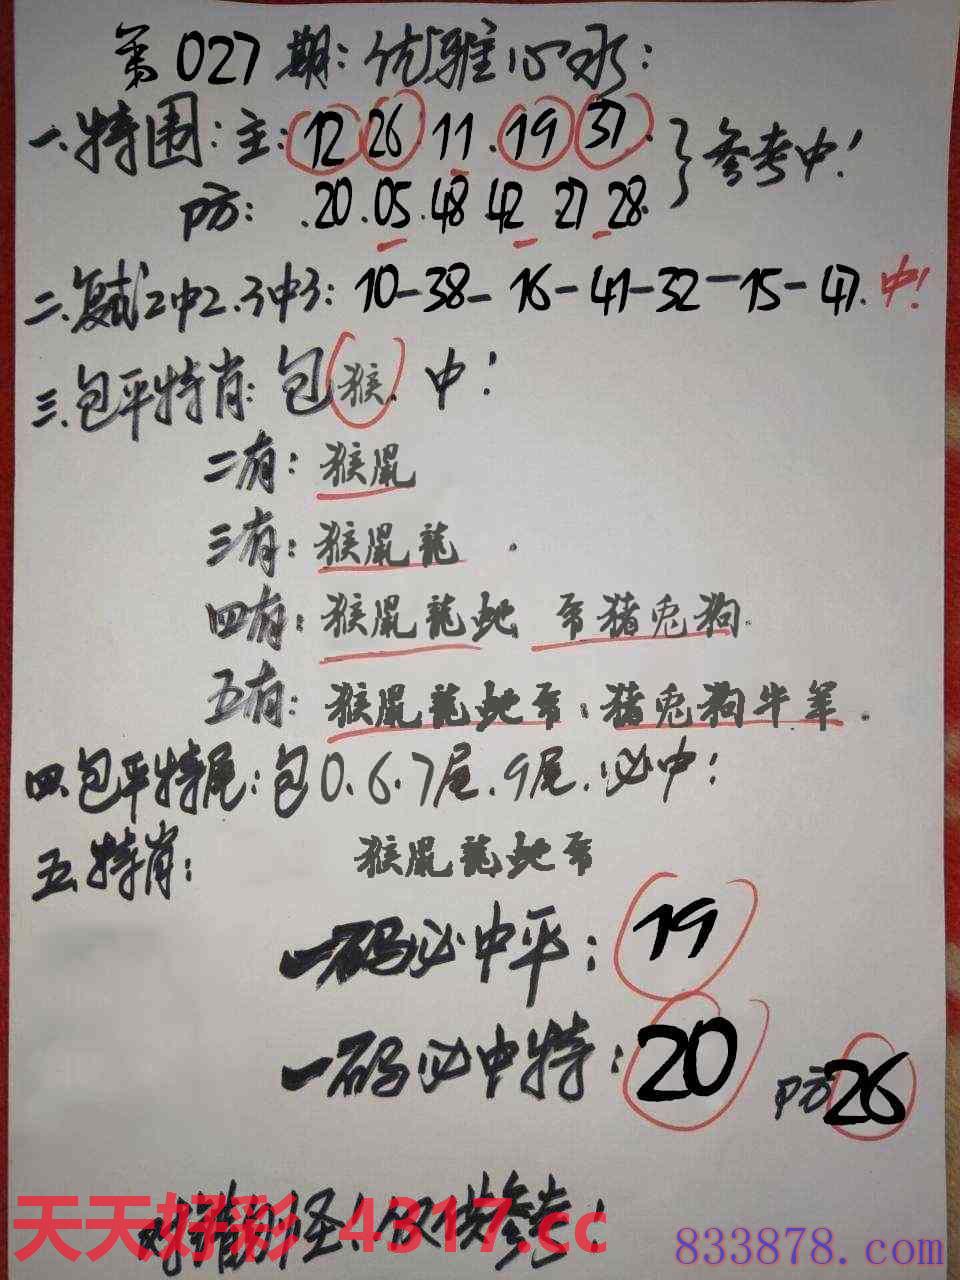 第027期:优雅心水:
一.特围:主:12 26.11.19 37. }参考中!
防:.20.05.48 42 27 28.
二.复试2中2.3中3:10-38-16-41-32-15-47.中!
三.包平特肖:包猴.中!
二有:猴鼠
三有:猴鼠龍.
四有:猴鼠龍蛇 馬猪兎狗.
五有:猴鼠龍蛇馬.猪兎狗牛羊.
四.包平特尾:包0.6.7尾.9尾.必中!
五.特肖:猴鼠龍蛇馬
一码必中平:19
一码必中特:20 防26
错 怪!仅供参考!
天天好彩 4317.cc
833878.com